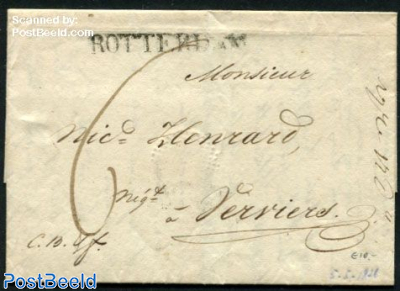 Scanned by
PostBeeld.com
ROTTERDAM
Monsieur
Nic.s Henrard,
Nég.t
à Verviers.
6
€10,-
PostBeeld